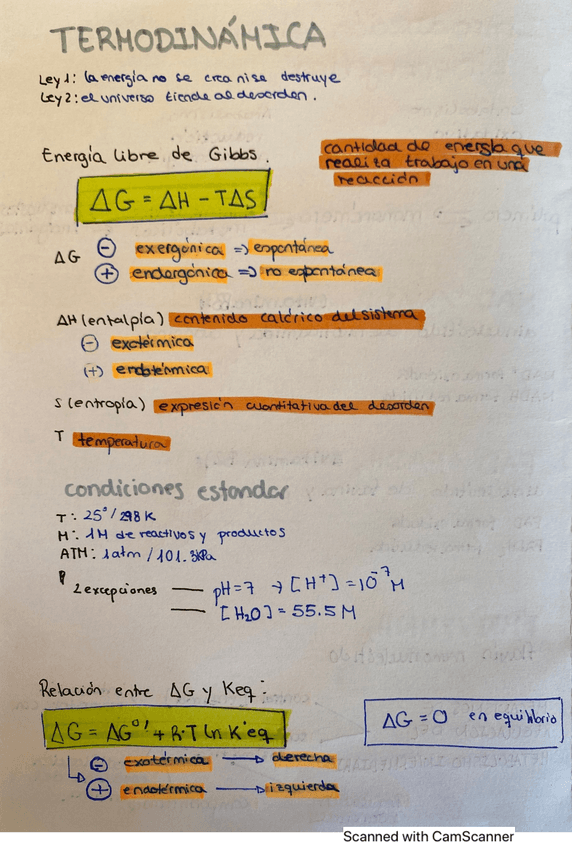 TERMODINÁMICA
Ley 1: la energía no se crea ni se destruye
Ley 2: el universo tiende al desorden.
Energía libre de Gibbs.
cantidad de energía que
realiza trabajo en una
reacción
ΔG = ΔH - TΔS
ΔG
⊖ exergónica => espontánea
⊕ endergónica => no espontánea
ΔH (entalpía) contenido calórico del sistema
⊖ exotérmica
(+) endotérmica
S (entropía) expresión cuantitativa del desorden
T temperatura
condiciones estandar
T: 25°/298 K
M: 1M de reactivos y productos
ATM: 1atm / 101.3kPa
2 excepciones — pH=7 → [H⁺] = 10⁻⁷ M
— [H₂O] = 55.5 M
Relación entre ΔG y Keq:
ΔG = ΔG°' + R·T ln K'eq
ΔG = 0 en equilibrio
⊖ exotérmica → derecha
⊕ endotérmica → izquierda
Scanned with CamScanner